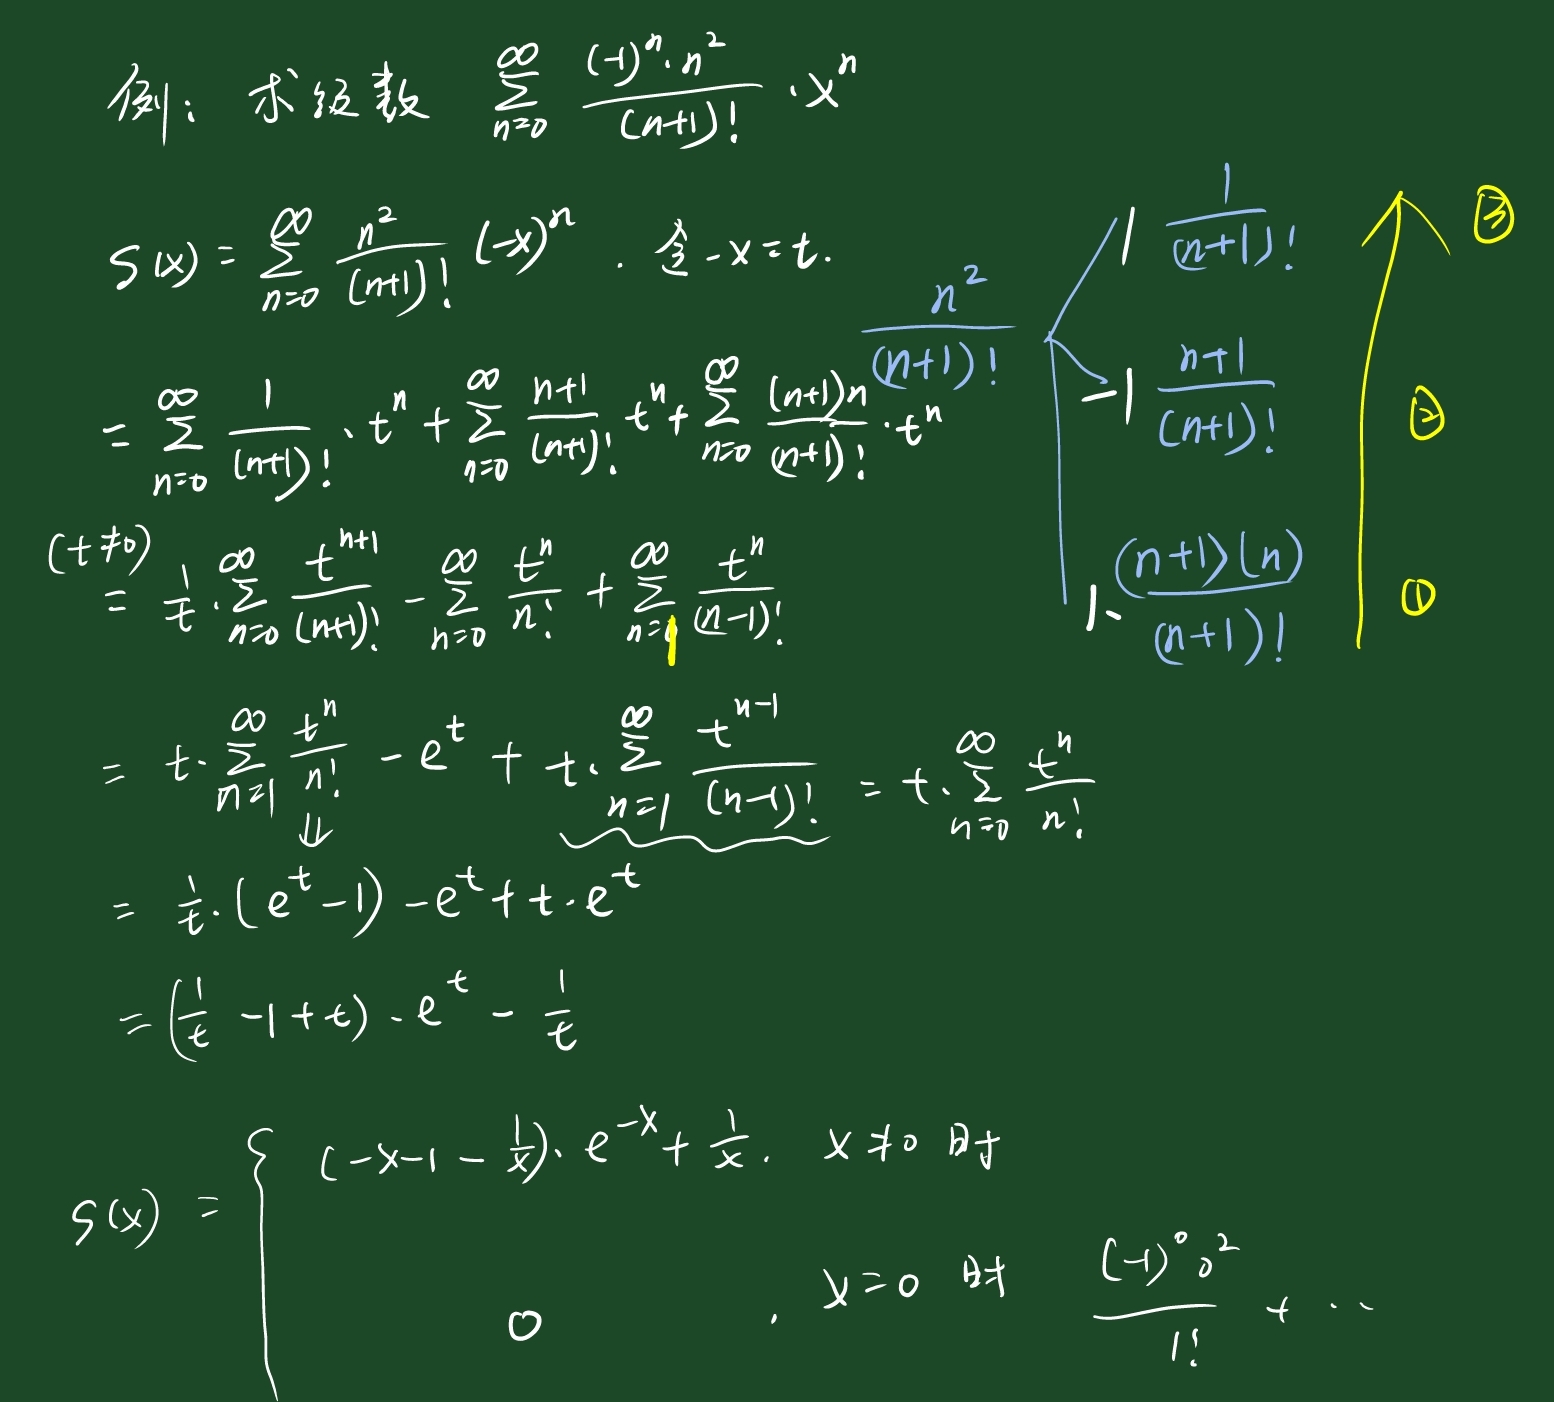 例: 求级数 \sum_{n=0}^{\infty} \frac{(-1)^n \cdot n^2}{(n+1)!} \cdot x^n
S(x) = \sum_{n=0}^{\infty} \frac{n^2}{(n+1)!} (-x)^n . 令 -x = t.
= \sum_{n=0}^{\infty} \frac{1}{(n+1)!} \cdot t^n + \sum_{n=0}^{\infty} \frac{n+1}{(n+1)!} t^n + \sum_{n=0}^{\infty} \frac{(n+1)n}{(n+1)!} \cdot t^n
(t≠0)
= \frac{1}{t} \cdot \sum_{n=0}^{\infty} \frac{t^{n+1}}{(n+1)!} - \sum_{n=0}^{\infty} \frac{t^n}{n!} + \sum_{n=1}^{\infty} \frac{t^n}{(n-1)!}
= t \cdot \sum_{n=1}^{\infty} \frac{t^n}{n!} - e^t + t \cdot \sum_{n=1}^{\infty} \frac{t^{n-1}}{(n-1)!} = t \cdot \sum_{n=0}^{\infty} \frac{t^n}{n!}
⇓
= \frac{1}{t} \cdot (e^t - 1) - e^t + t \cdot e^t
= (\frac{1}{t} - 1 + t) \cdot e^t - \frac{1}{t}
S(x) = {
(-x-1-\frac{1}{x}) \cdot e^{-x} + \frac{1}{x}. x≠0 时
0 , x=0 时 \frac{(-1)^0 0^2}{1!} + ··
\frac{n^2}{(n+1)!}
1 \frac{1}{(n+1)!} ③
-1 \frac{n+1}{(n+1)!} ②
1· \frac{(n+1)(n)}{(n+1)!} ①